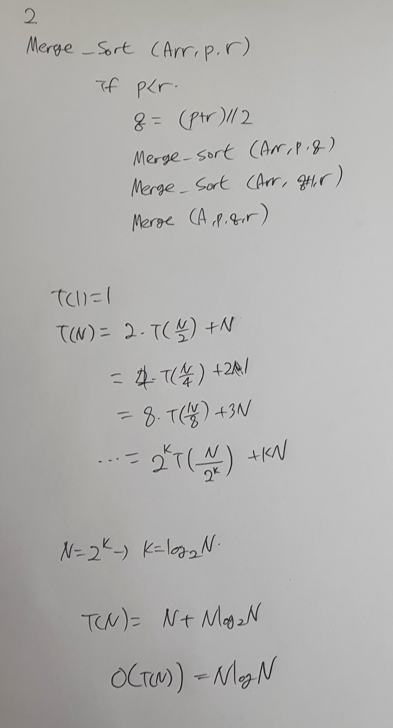 2
Merge_Sort (Arr, p, r)
If p<r.
q = (p+r)//2
Merge_sort (Arr, p, q)
Merge_Sort (Arr, q+1, r)
Merge (A, p, q, r)
T(1)=1
T(N) = 2·T(N/2) + N
= 4·T(N/4) + 2N
= 8·T(N/8) + 3N
... = 2^K T(N/2^K) + KN
N=2^K → K=log₂N.
T(N) = N + Nlog₂N
O(T(N)) = NlogN